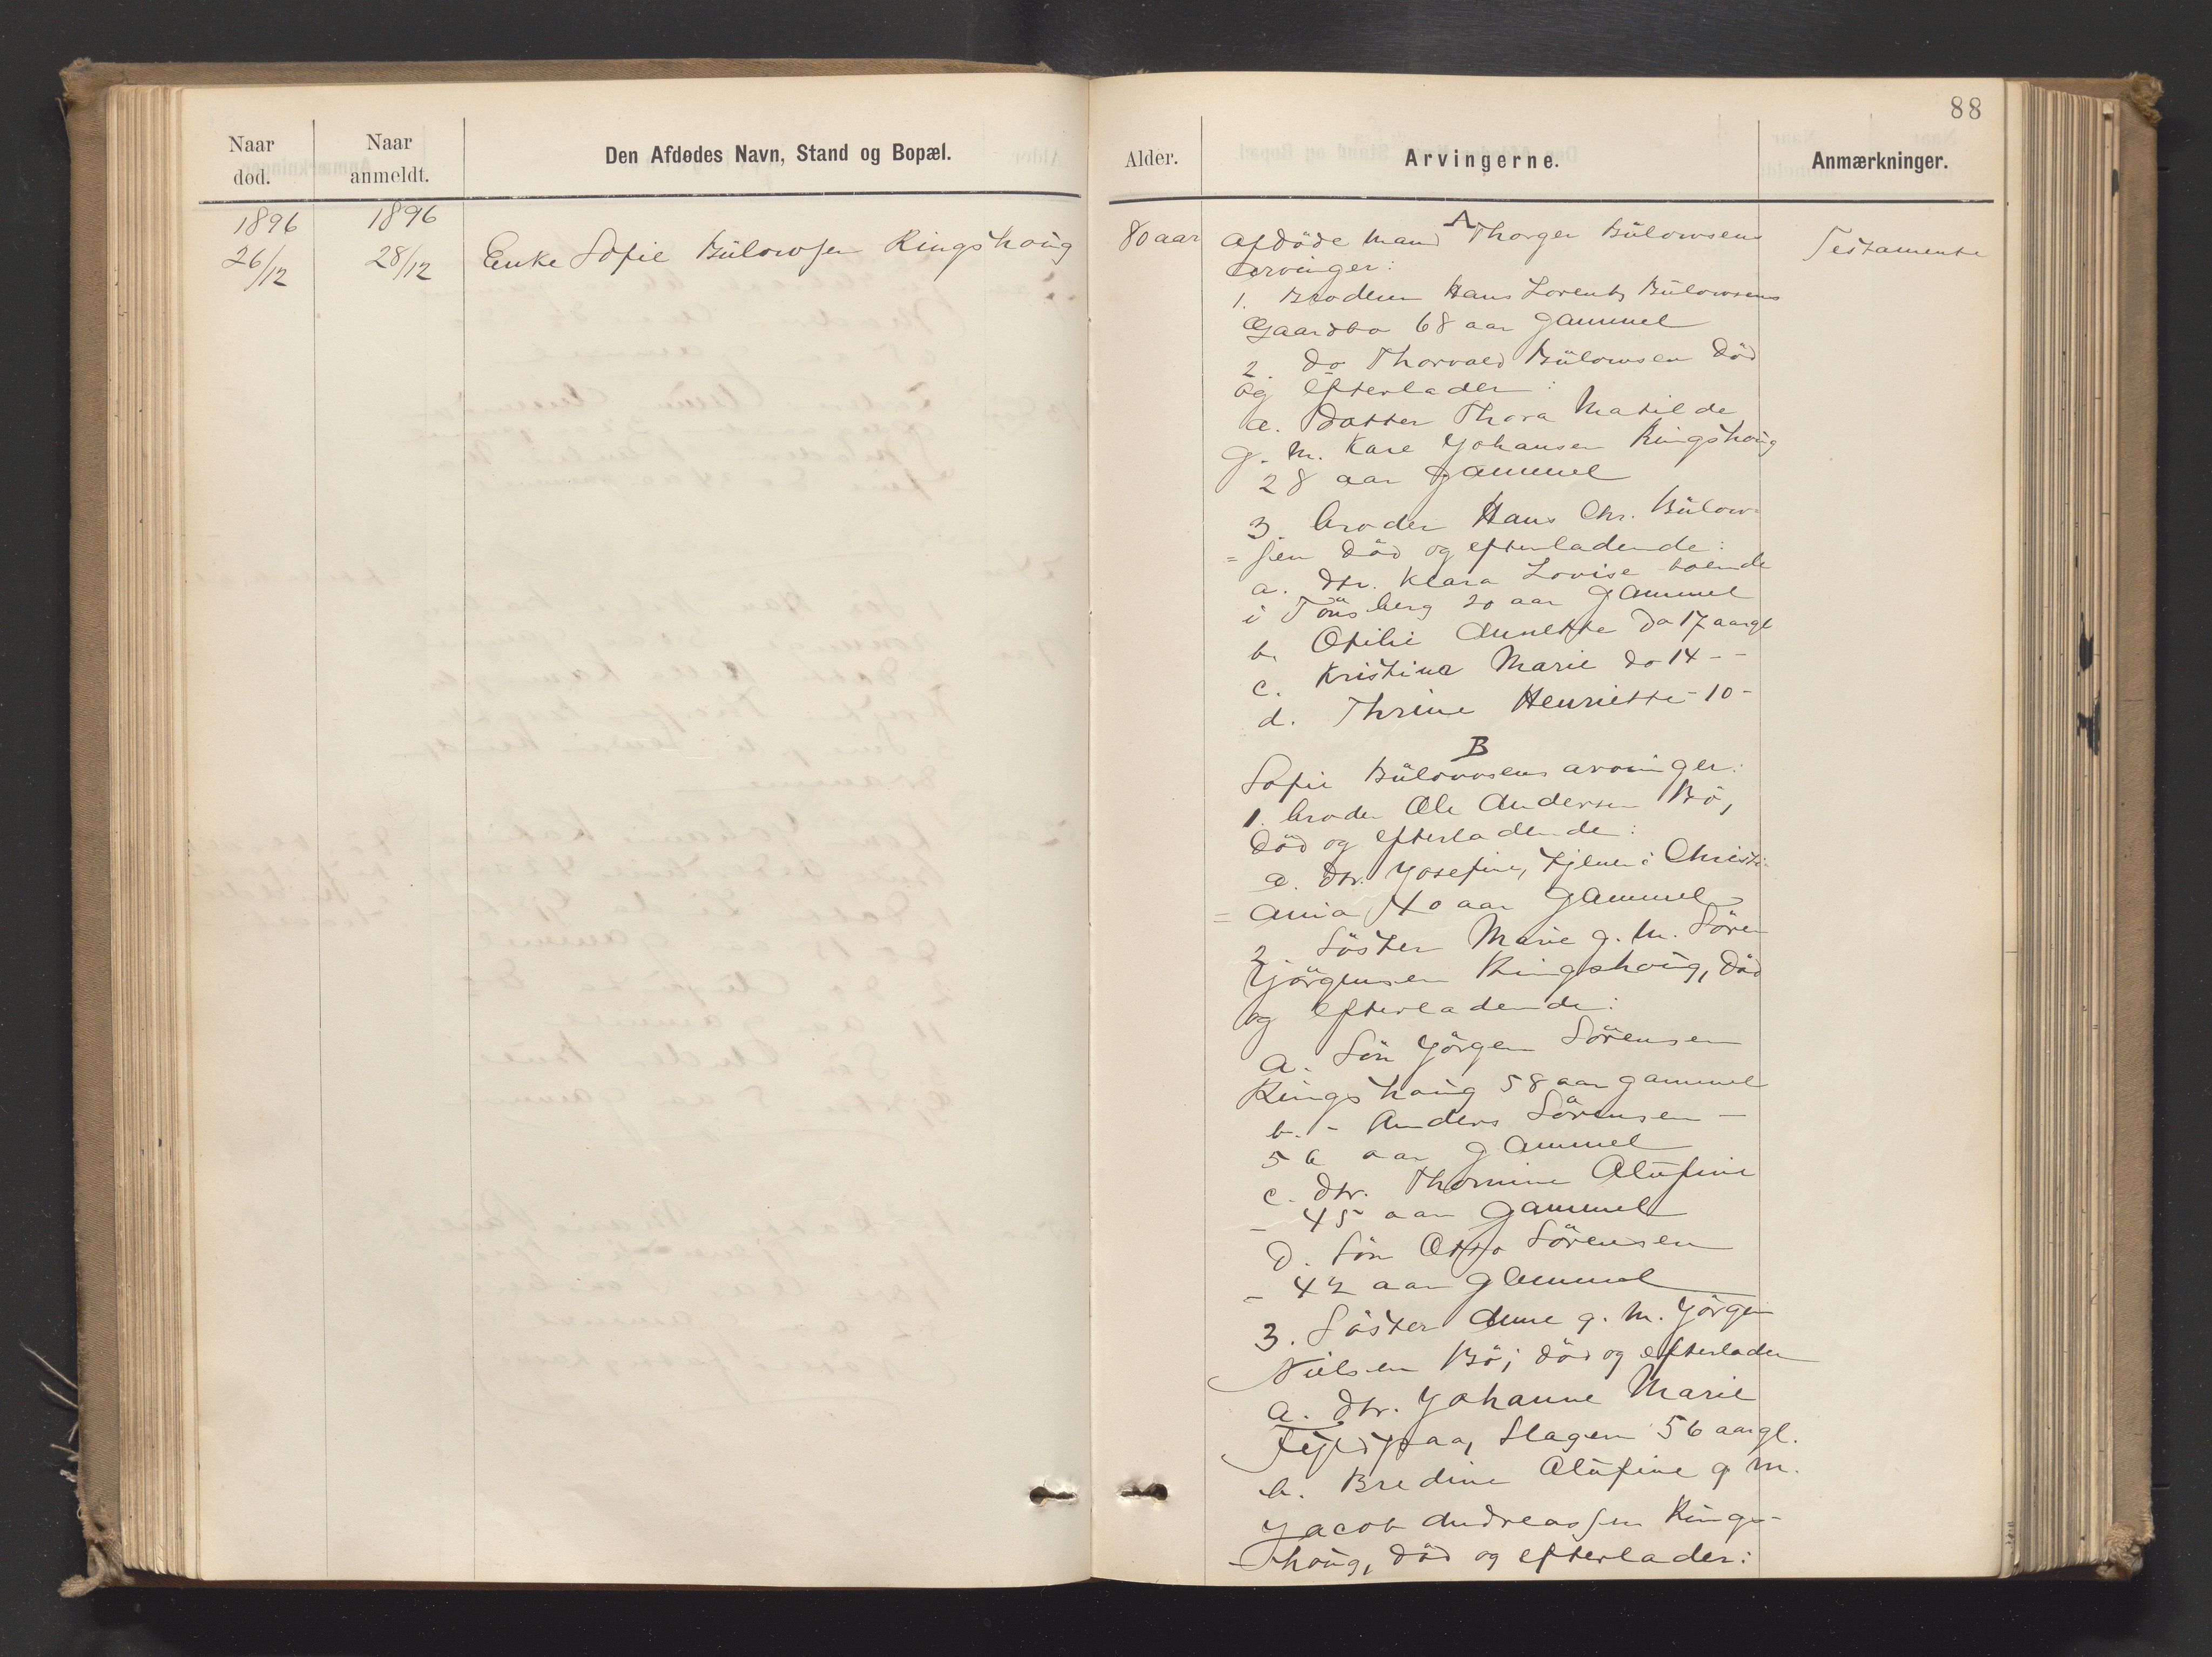 88
Naar død.
Naar anmeldt.
Den Afdødes Navn, Stand og Bopæl.
Alder.
Arvingerne.
Anmærkninger.
1896
26/12
1896
28/12
Enke Sofie Bülowsen Ringshoug
80 aar
A
Afdöde Mand Thorger Bülowsens
Arvinger:
1. Broderen Hans Lorents Bülowsens
Gaardbo 68 aar gammel
2. do Thorvald Bülowsen död
og efterlader:
a. Datter Thora Matilde
g. m. Karl Johansen Ringshoug
28 aar gammel
3 broder Hans Chr. Bülow-
=sen död og efterladende:
a. dtr. Klara Lovise boende
i Tönsberg 20 aar gammel
b. Otilie Annette do 17 aargl
c. Kristine Marie do 14 - -
d. Thrine Henriette - 10 -
B
Sofie Bülowsens arvinger:
1. broder Ole Andersen Bö,
död og efterladende:
a. dtr. Josefine, tjener i Christi-
=ania 40 aar gammel
2 Söster Marie g. m. Sören
Jörgensen Ringshoug, död
og efterladende:
a. Sön Jörgen Sörensen
Ringshoug 58 aar gammel
b. - Anders Sörensen -
56 aar gammel
c. dtr. Thomine Olufine
- 45 aar gammel
d. Sön Otto Sörensen
- 42 aar gammel
3. Söster Anne g. m. Jörgen
Nielsen Bö, död og efterlader
a. dtr. Johanne Marie
Slagen 56 aargl.
b. Bredine Olufine g m.
Jacob Andreassen Rings-
-houg, död og efterlader:
Testamente